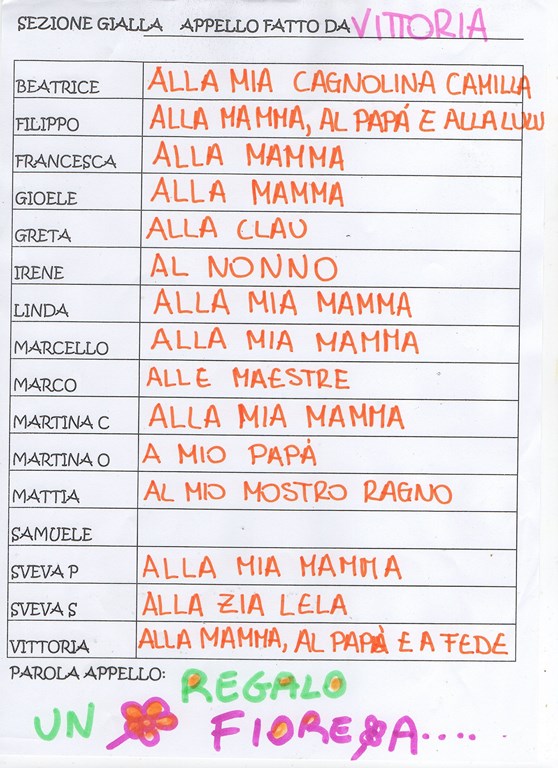 SEZIONE GIALLA APPELLO FATTO DA VITTORIA
BEATRICE ALLA MIA CAGNOLINA CAMILLA
FILIPPO ALLA MAMMA, AL PAPÁ E ALLA LULU
FRANCESCA ALLA MAMMA
GIOELE ALLA MAMMA
GRETA ALLA CLAU
IRENE AL NONNO
LINDA ALLA MIA MAMMA
MARCELLO ALLA MIA MAMMA
MARCO ALLE MAESTRE
MARTINA C ALLA MIA MAMMA
MARTINA O A MIO PAPÀ
MATTIA AL MIO MOSTRO RAGNO
SAMUELE
SVEVA P ALLA MIA MAMMA
SVEVA S ALLA ZIA LELA
VITTORIA ALLA MAMMA, AL PAPÀ E A FEDE
PAROLA APPELLO: REGALO
UN FIORE A....